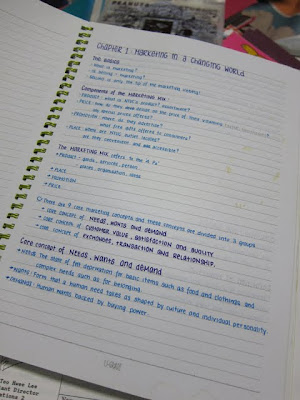 PEANUTS
CHAPTER 1 : MARKETING IN A CHANGING WORLD
THE BASICS
- What is marketing?
- Is selling = marketing?
- Selling is only the tip of the marketing iceberg!
Components of the MARKETING MIX :
- PRODUCT : What is product? Investment?
- PRICE : how do they decide on the price of their
any special prices offered?
- PROMOTION : where do they advertise?
what gifts offered to consumers?
- PLACE : where are outlets located?
are they convenient and accessible?
The MARKETING MIX refers to the 4 Ps
- PRODUCT - goods, services, person,
places, organisation, ideas
- PLACE
- PROMOTION
- PRICE
There are 9 core marketing concepts and these concepts are divided into 3 groups.
- core concept of NEEDS, WANTS AND DEMAND
- core concept of CUSTOMER VALUE, SATISFACTION AND QUALITY
- core concept of EXCHANGES, TRANSACTION AND RELATIONSHIP.
Core concept of NEEDS, WANTS AND DEMAND
- NEEDS: The state of felt deprivation for basic items such as food and clothings and
complex needs such as for belonging.
- WANTS: Form that a human need takes as shaped by culture and individual personality.
- DEMAND: Human wants backed by buying power.
Teo Hwee Lee
ant Director
ations 2